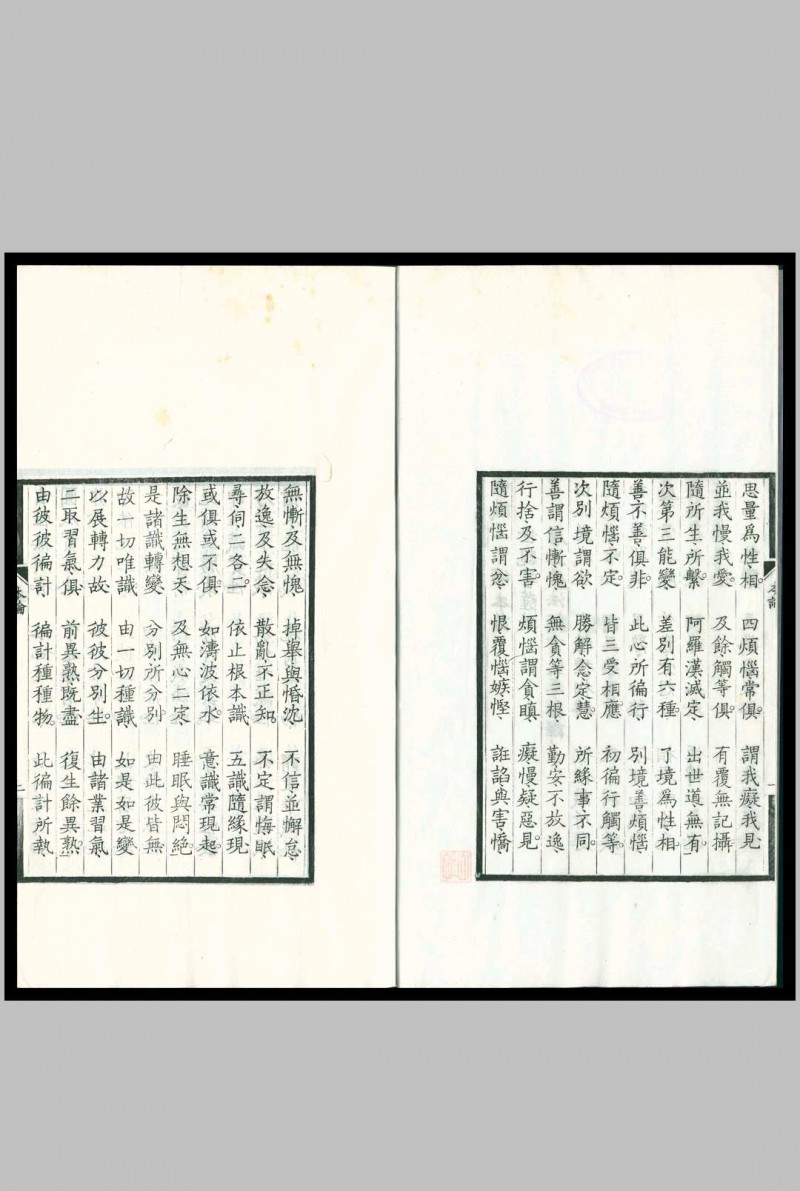 思量爲性相。四煩惱常俱。謂我癡我見、
並我慢我愛。及餘觸等俱。有覆無記攝。
隨所生所繫。阿羅漢滅定、出世道無有。
次第三能變。差別有六種。了境爲性相。
善不善俱非。此心所徧行、別境善煩惱、
隨煩惱不定。皆三受相應。初徧行觸等。
次別境謂欲、勝解念定慧。所緣事不同。
善謂信慚愧、無貪等三根、勤安不放逸、
行捨及不害。煩惱謂貪瞋、癡慢疑惡見。
隨煩惱謂忿、恨覆惱嫉慳、誑諂與害憍、
本論
一
無慚及無愧、掉舉與惛沈、不信並懈怠、
放逸及失念、散亂不正知。不定謂悔眠、
尋伺二各二。依止根本識、五識隨緣現、
或俱或不俱。如濤波依水。意識常現起。
除生無想天、及無心二定、睡眠與悶絕。
是諸識轉變、分別所分別、由此彼皆無、
故一切唯識。由一切種識、如是如是變、
以展轉力故、彼彼分別生。由諸業習氣、
二取習氣俱、前異熟既盡、復生餘異熟。
由彼彼徧計、徧計種種物。此徧計所執、
本論
二